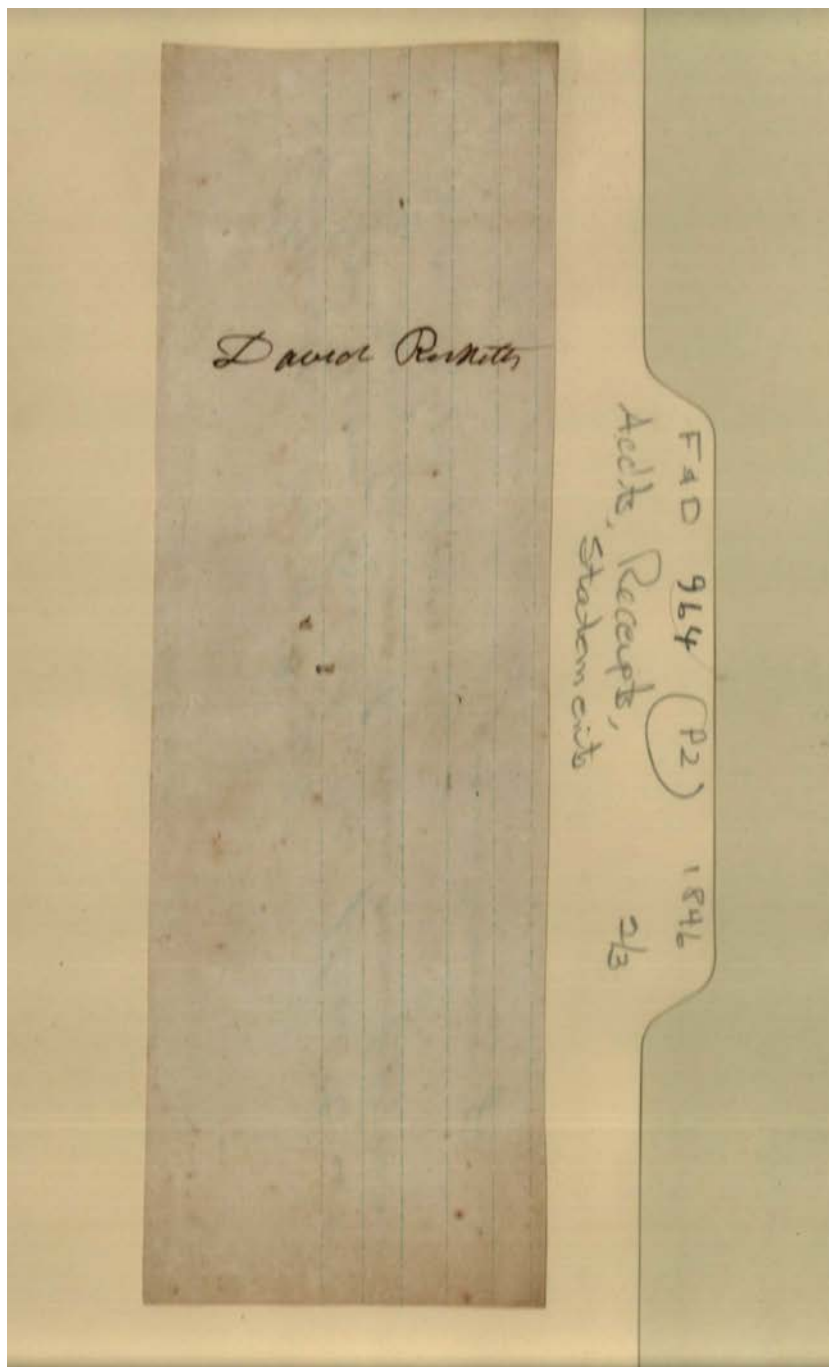 David
F&D 964 (P2) 1846
Accts, Receipts,
Statements
2/3